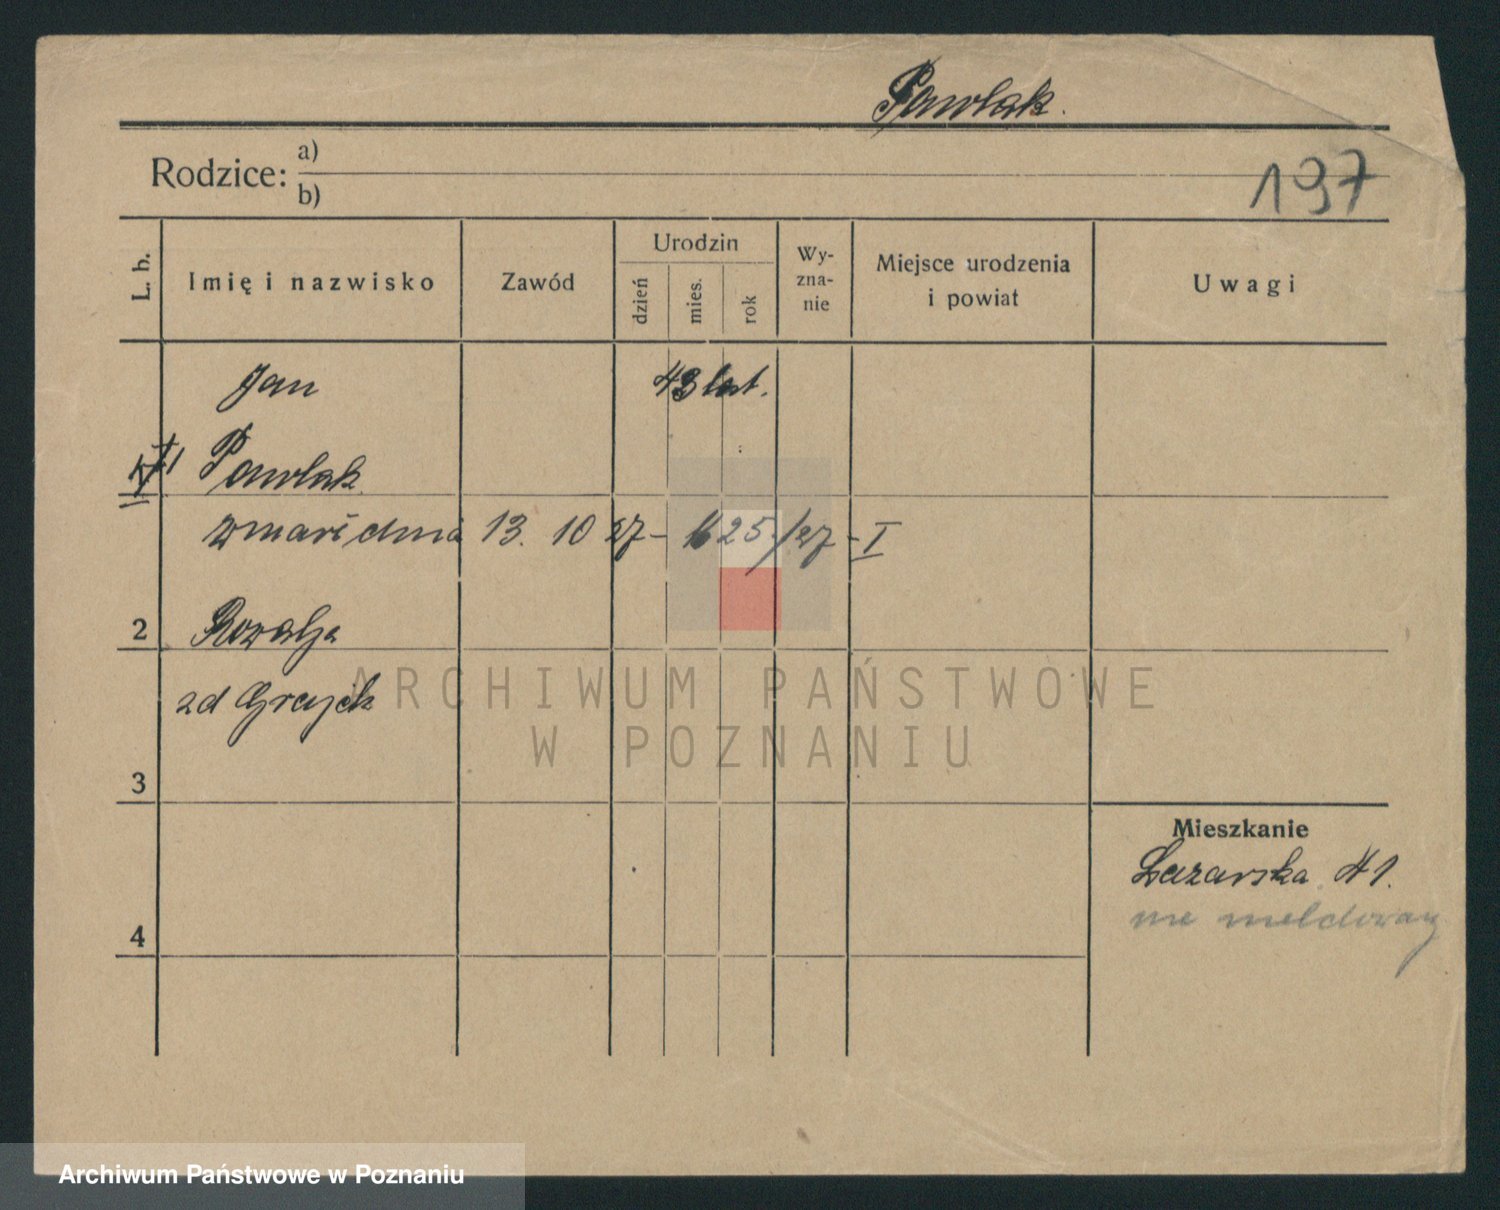 Pawlak.
Rodzice: a)
b)
197
L. b.
Imię i nazwisko
Zawód
Urodzin
dzień
mies.
rok
Wy-
zna-
nie
Miejsce urodzenia
i powiat
Uwagi
Jan 43 lat.
1 Pawlak
zmarł dnia 13. 10 27 - 1625/27 - I
2 Rozalja
zd
3
Mieszkanie
Łazarska 41.
nie meldowany
4
ARCHIWUM PAŃSTWOWE
W POZNANIU
Archiwum Państwowe w Poznaniu